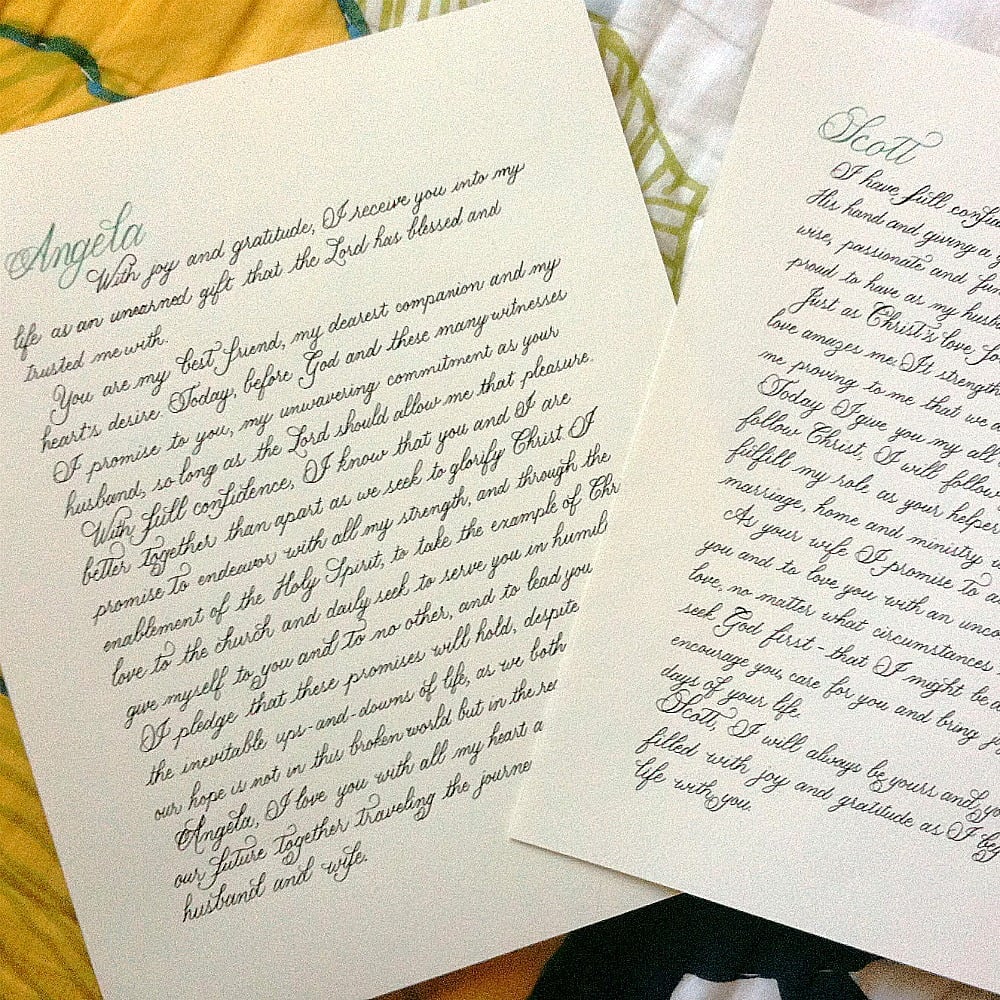 Angela
With joy and gratitude, I receive you into my
life as an unearned gift that the Lord has blessed and
trusted me with.
You are my best friend, my dearest companion and my
heart's desire. Today, before God and these many witnesses
I promise to you, my unwavering commitment as your
husband, so long as the Lord should allow me that pleasure.
With full confidence, I know that you and I are
better together than apart as we seek to glorify Christ. I
promise to endeavor with all my strength, and through the
enablement of the Holy Spirit, to take the example of Chr
love to the church and daily seek to serve you in humili
give myself to you and to no other, and to lead you
I pledge that these promises will hold, despite
the inevitable ups-and-downs of life, as we both
our hope is not in this broken world but in the re
Angela, I love you with all my heart a
our future together traveling the journe
husband and wife.
Scott
I have full confid
His hand and giving a g
wise, passionate and fun
proud to have as my husb
Just as Christ's love for
love amazes me. It strength
me proving to me that we a
Today I give you my all
follow Christ, I will follow
fulfill my role as your helper
marriage, home and ministry
As your wife I promise to a
you and to love you with an unco
love, no matter what circumstances
seek God first - that I might be a
encourage you, care for you and bring jo
days of your life.
Scott, I will always be yours and yo
filled with joy and gratitude as I beg
life with you.